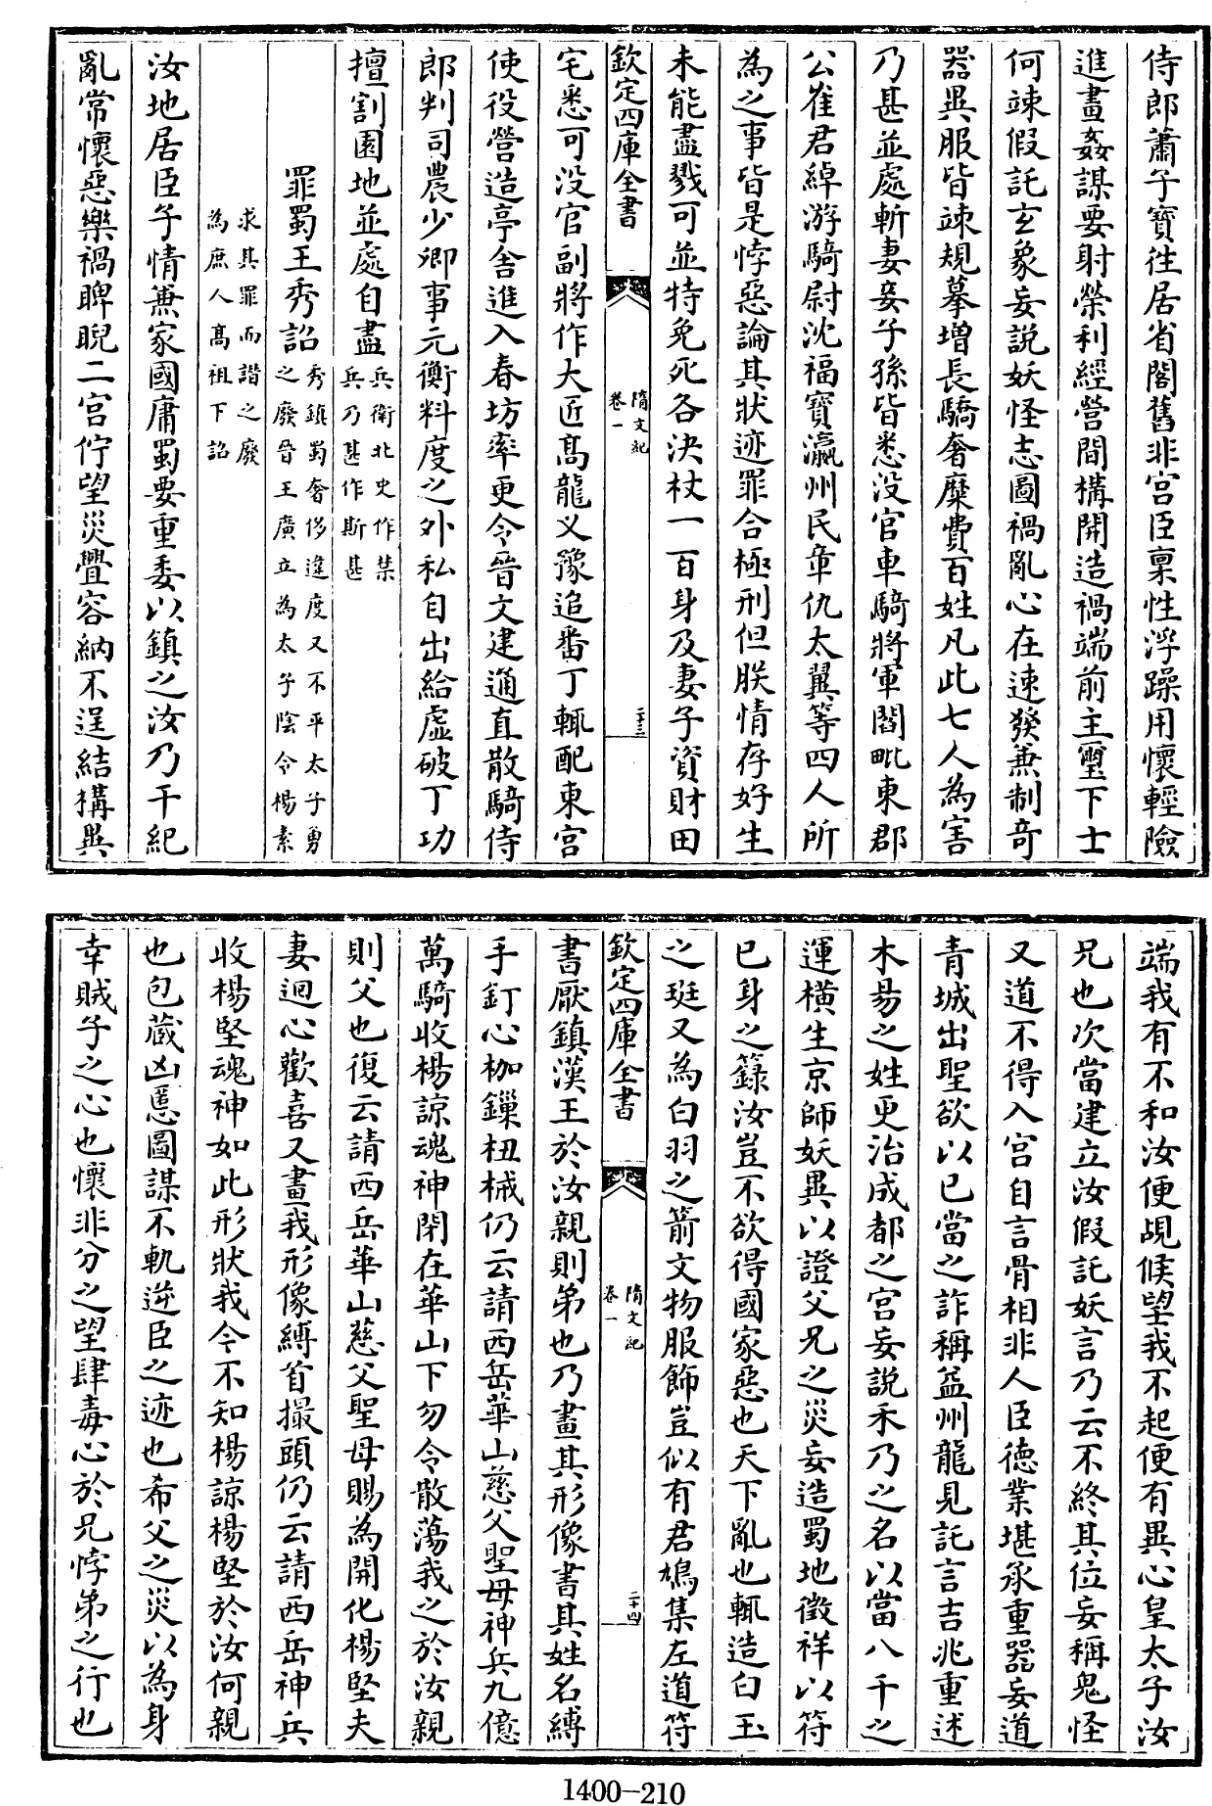 侍郎蕭子寶往居省閣舊非宮臣稟性浮躁用懷輕險
進畫姦謀要射榮利經營間構開造禍端前主璽下士
何竦假託玄象妄說妖怪志圖禍亂心在速發兼制奇
器異服皆竦規摹增長驕奢糜費百姓凡此七人為害
乃甚並處斬妻妾子孫皆悉沒官車騎將軍閻毗東郡
公崔君綽游騎尉沈福寶瀛州民章仇太翼等四人所
為之事皆是悖惡論其狀迹罪合極刑但朕情存好生
未能盡戮可並特免死各決杖一百身及妻子資財田
欽定四庫全書
隋文紀
卷一
二十三
宅悉可没官副將作大匠髙龍乂豫追番丁輒配東宮
使役營造亭舍進入春坊率更令晉文建通直散騎侍
郎判司農少卿事元衡料度之外私自出給虛破丁功
擅割園地並處自盡
兵衛北史作禁
兵乃甚作斯甚
罪蜀王秀詔
秀鎮蜀奢侈違度又不平太子勇
之廢晉王廣立為太子陰令楊素
求其罪而譖之廢
為庶人髙祖下詔
汝地居臣子情兼家國庸蜀要重委以鎮之汝乃干紀
亂常懷惡樂禍睥睨二宮佇望災釁容納不逞結構異
端我有不和汝便覘候望我不起便有異心皇太子汝
兄也次當建立汝假託妖言乃云不終其位妄稱鬼怪
又道不得入宮自言骨相非人臣徳業堪承重器妄道
青城出聖欲以已當之詐稱益州龍見託言吉兆重述
木易之姓更治成都之宮妄說禾乃之名以當八千之
運橫生京師妖異以證父兄之災妄造蜀地徵祥以符
已身之籙汝豈不欲得國家惡也天下亂也輒造白玉
之珽又為白羽之箭文物服飾豈似有君鳩集左道符
欽定四庫全書
隋文紀
卷一
二十四
書厭鎮漢王於汝親則弟也乃畫其形像書其姓名縛
手釘心枷鏁杻械仍云請西岳華山慈父聖母神兵九億
萬騎收楊諒魂神閉在華山下勿令散蕩我之於汝親
則父也復云請西岳華山慈父聖母賜為開化楊堅夫
妻迴心歡喜又畫我形像縛首撮頭仍云請西岳神兵
收楊堅魂神如此形狀我今不知楊諒楊堅於汝何親
也包藏凶慝圖謀不軌逆臣之迹也希父之災以為身
幸賊子之心也懷非分之望肆毒心於兄悖弟之行也
1400-210